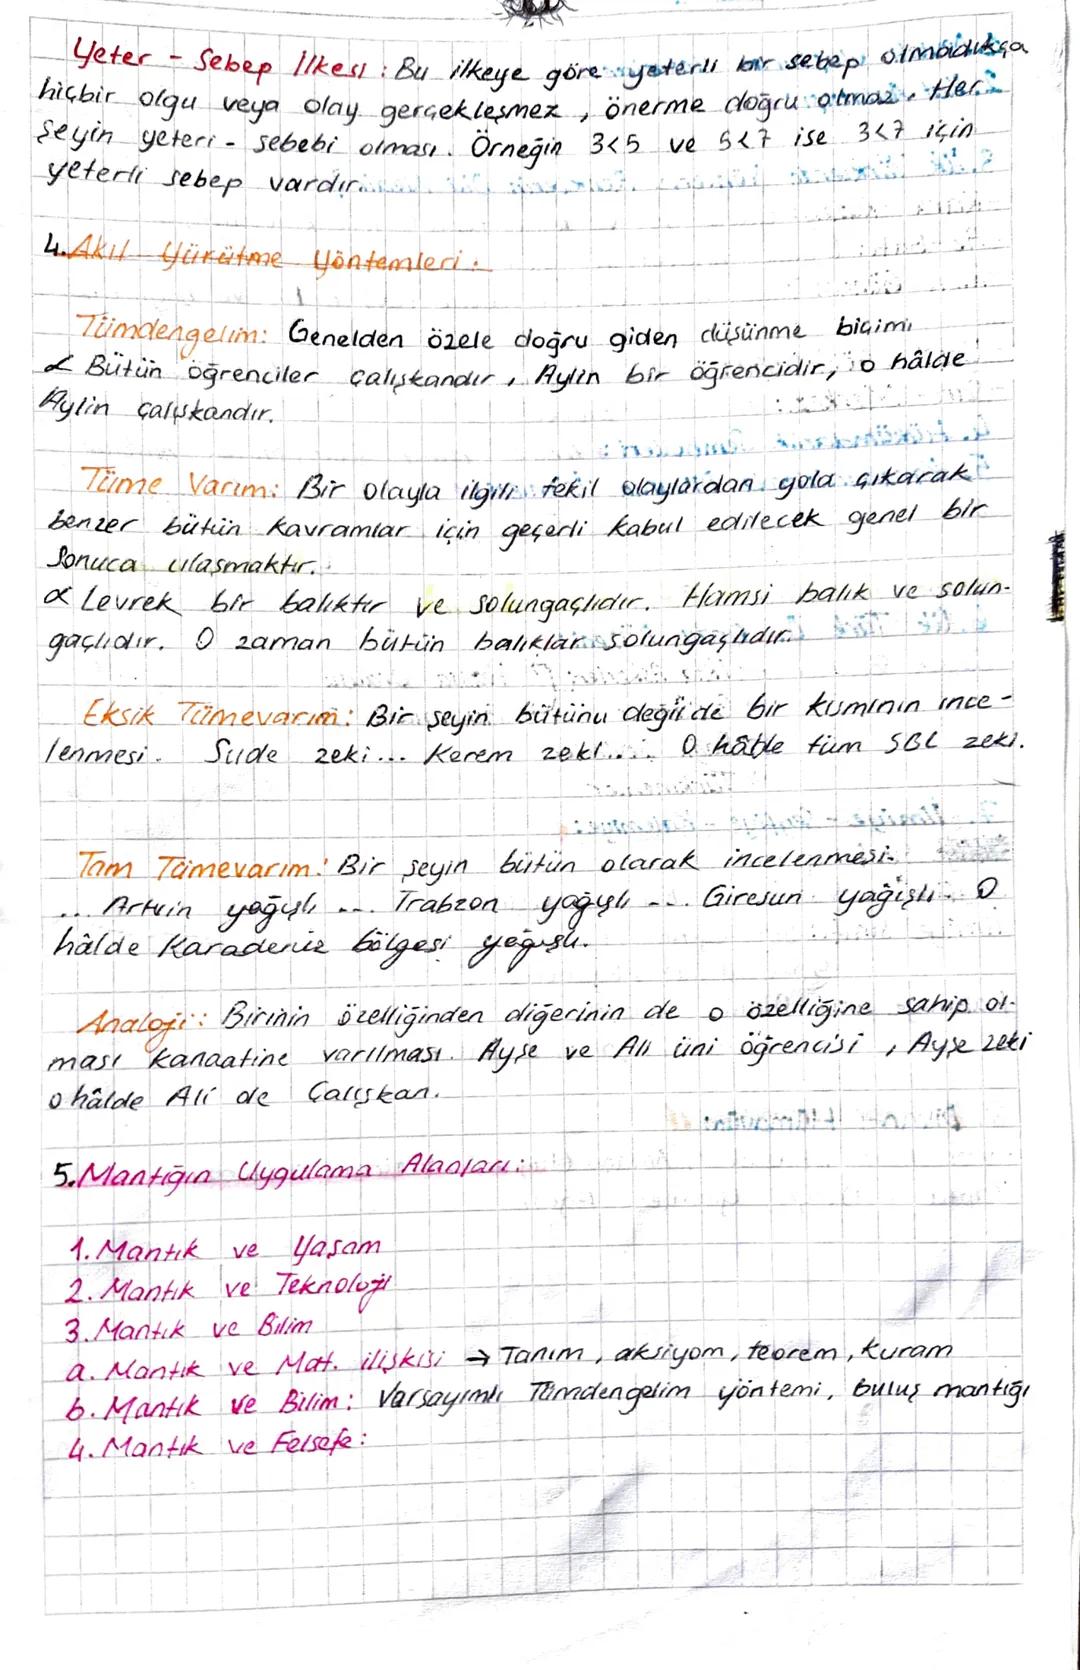 Yeter - Sebep İlkesi : Bu ilkeye göre yeterli bir sebep olmadıkça
hiçbir olgu veya olay gerçekleşmez, önerme doğru olmaz. Her
şeyin yeteri - sebebi olması. Örneğin 3<5 ve 5<7 ise 3<7 için
yeterli sebep vardır.
4. Akıl Yürütme Yöntemleri :
Tümdengelim: Genelden özele doğru giden düşünme biçimi
∝ Bütün öğrenciler çalışkandır, Aylin bir öğrencidir, o hâlde
Aylin çalışkandır.
Tüme Varım: Bir olayla ilgili tekil olaylardan yola çıkarak
benzer bütün kavramlar için geçerli kabul edilecek genel bir
Sonuca ulaşmaktır.
∝ Levrek bir balıktır ve solungaçlıdır. Hamsi balık ve solun-
gaçlıdır. O zaman bütün balıklar solungaçlıdır.
Eksik Tümevarım: Bir şeyin bütünü değil de bir kısmının ince-
lenmesi. Sude zeki... Kerem zeki... O hâlde tüm SBL zeki.
Tam Tümevarım: Bir şeyin bütün olarak incelenmesi.
... Artvin yağışlı ... Trabzon yağışlı ... Giresun yağışlı. O
hâlde Karadeniz bölgesi yağışlı.
Analoji: Birinin özelliğinden diğerinin de o özelliğine sahip ol-
ması kanaatine varılması. Ayşe ve Ali üni öğrencisi, Ayşe zeki
o hâlde Ali de Çalışkan.
5. Mantığın Uygulama Alanları:
1. Mantık ve Yaşam
2. Mantık ve Teknoloji
3. Mantık ve Bilim
a. Mantık ve Mat. ilişkisi → Tanım, aksiyom, teorem, kuram
b. Mantık ve Bilim: Varsayımlı Tümdengelim yöntemi, buluş mantığı
4. Mantık ve Felsefe: